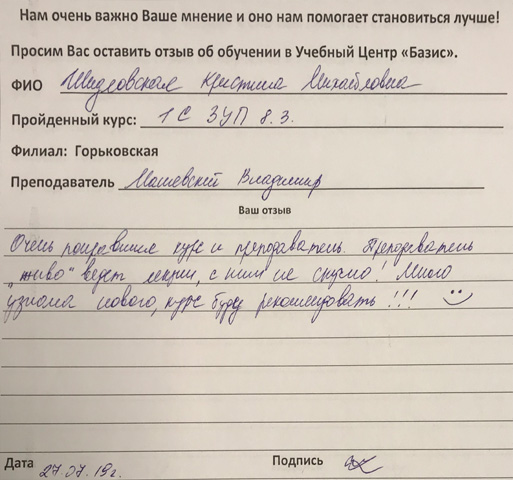 Нам очень важно Ваше мнение и оно нам помогает становиться лучше!
Просим Вас оставить отзыв об обучении в Учебный Центр «Базис».
ФИО Шидловская Кристина Михайловна
Пройденный курс: 1С ЗУП 8.3.
Филиал: Горьковская
Преподаватель Машевский Владимир
Ваш отзыв
Очень понравился курс и преподаватель. Преподаватель
"живо" ведет лекции, с ним не скучно! Много
узнала нового, курс буду рекомендовать!!!
Дата 27.07.19г. Подпись